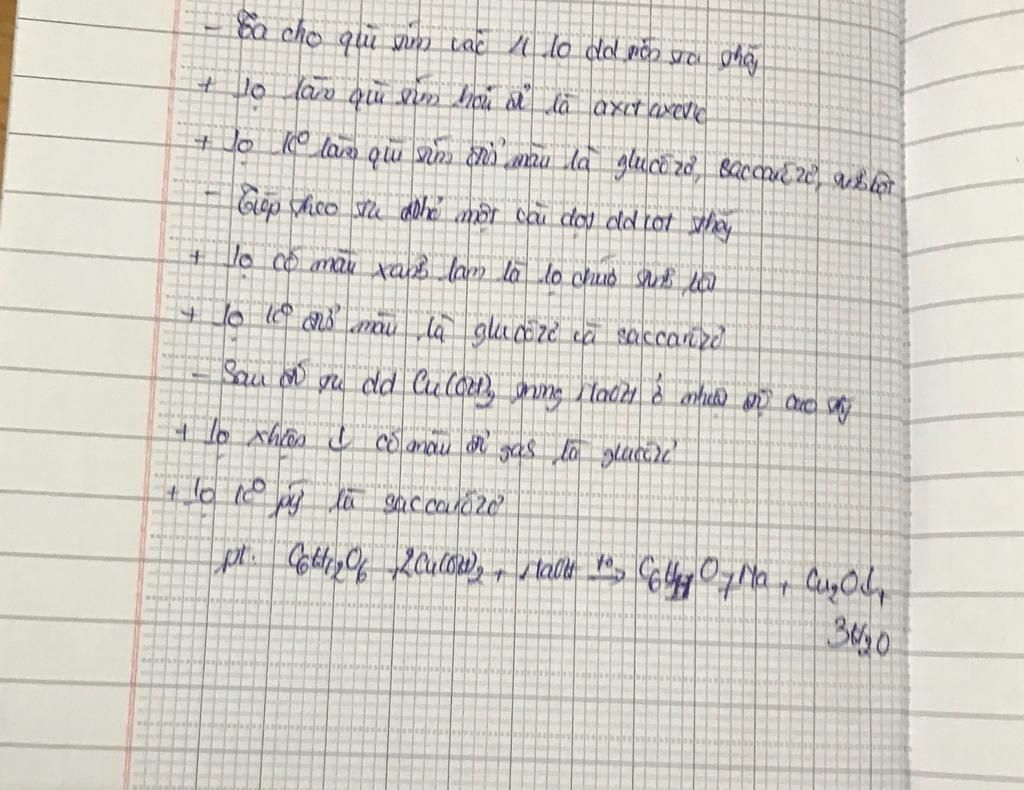 - Ta cho quì tím vào 4 lọ dd trên ta thấy
+ lọ làm quì tím hoá đỏ là axit axetic
+ lọ k° làm quì tím đổi màu là glucôzơ, saccarôzơ, tinh bột
- Tiếp theo ta nhỏ một vài giọt dd iot thấy
+ lọ có màu xanh lam là lọ chứa tinh bột
+ lọ k° đổi màu là glucôzơ và saccarôzơ
- Sau đó ta dd Cu(OH)2 trong NaOH ở nhiệt độ cao thấy
+ lọ ↓ có màu đỏ gạch là glucôzơ
+ lọ k° pứ là saccarôzơ
pt: C6H12O6 + 2Cu(OH)2 + NaOH t°→ C6H11O7Na + Cu2O↓ +
3H2O